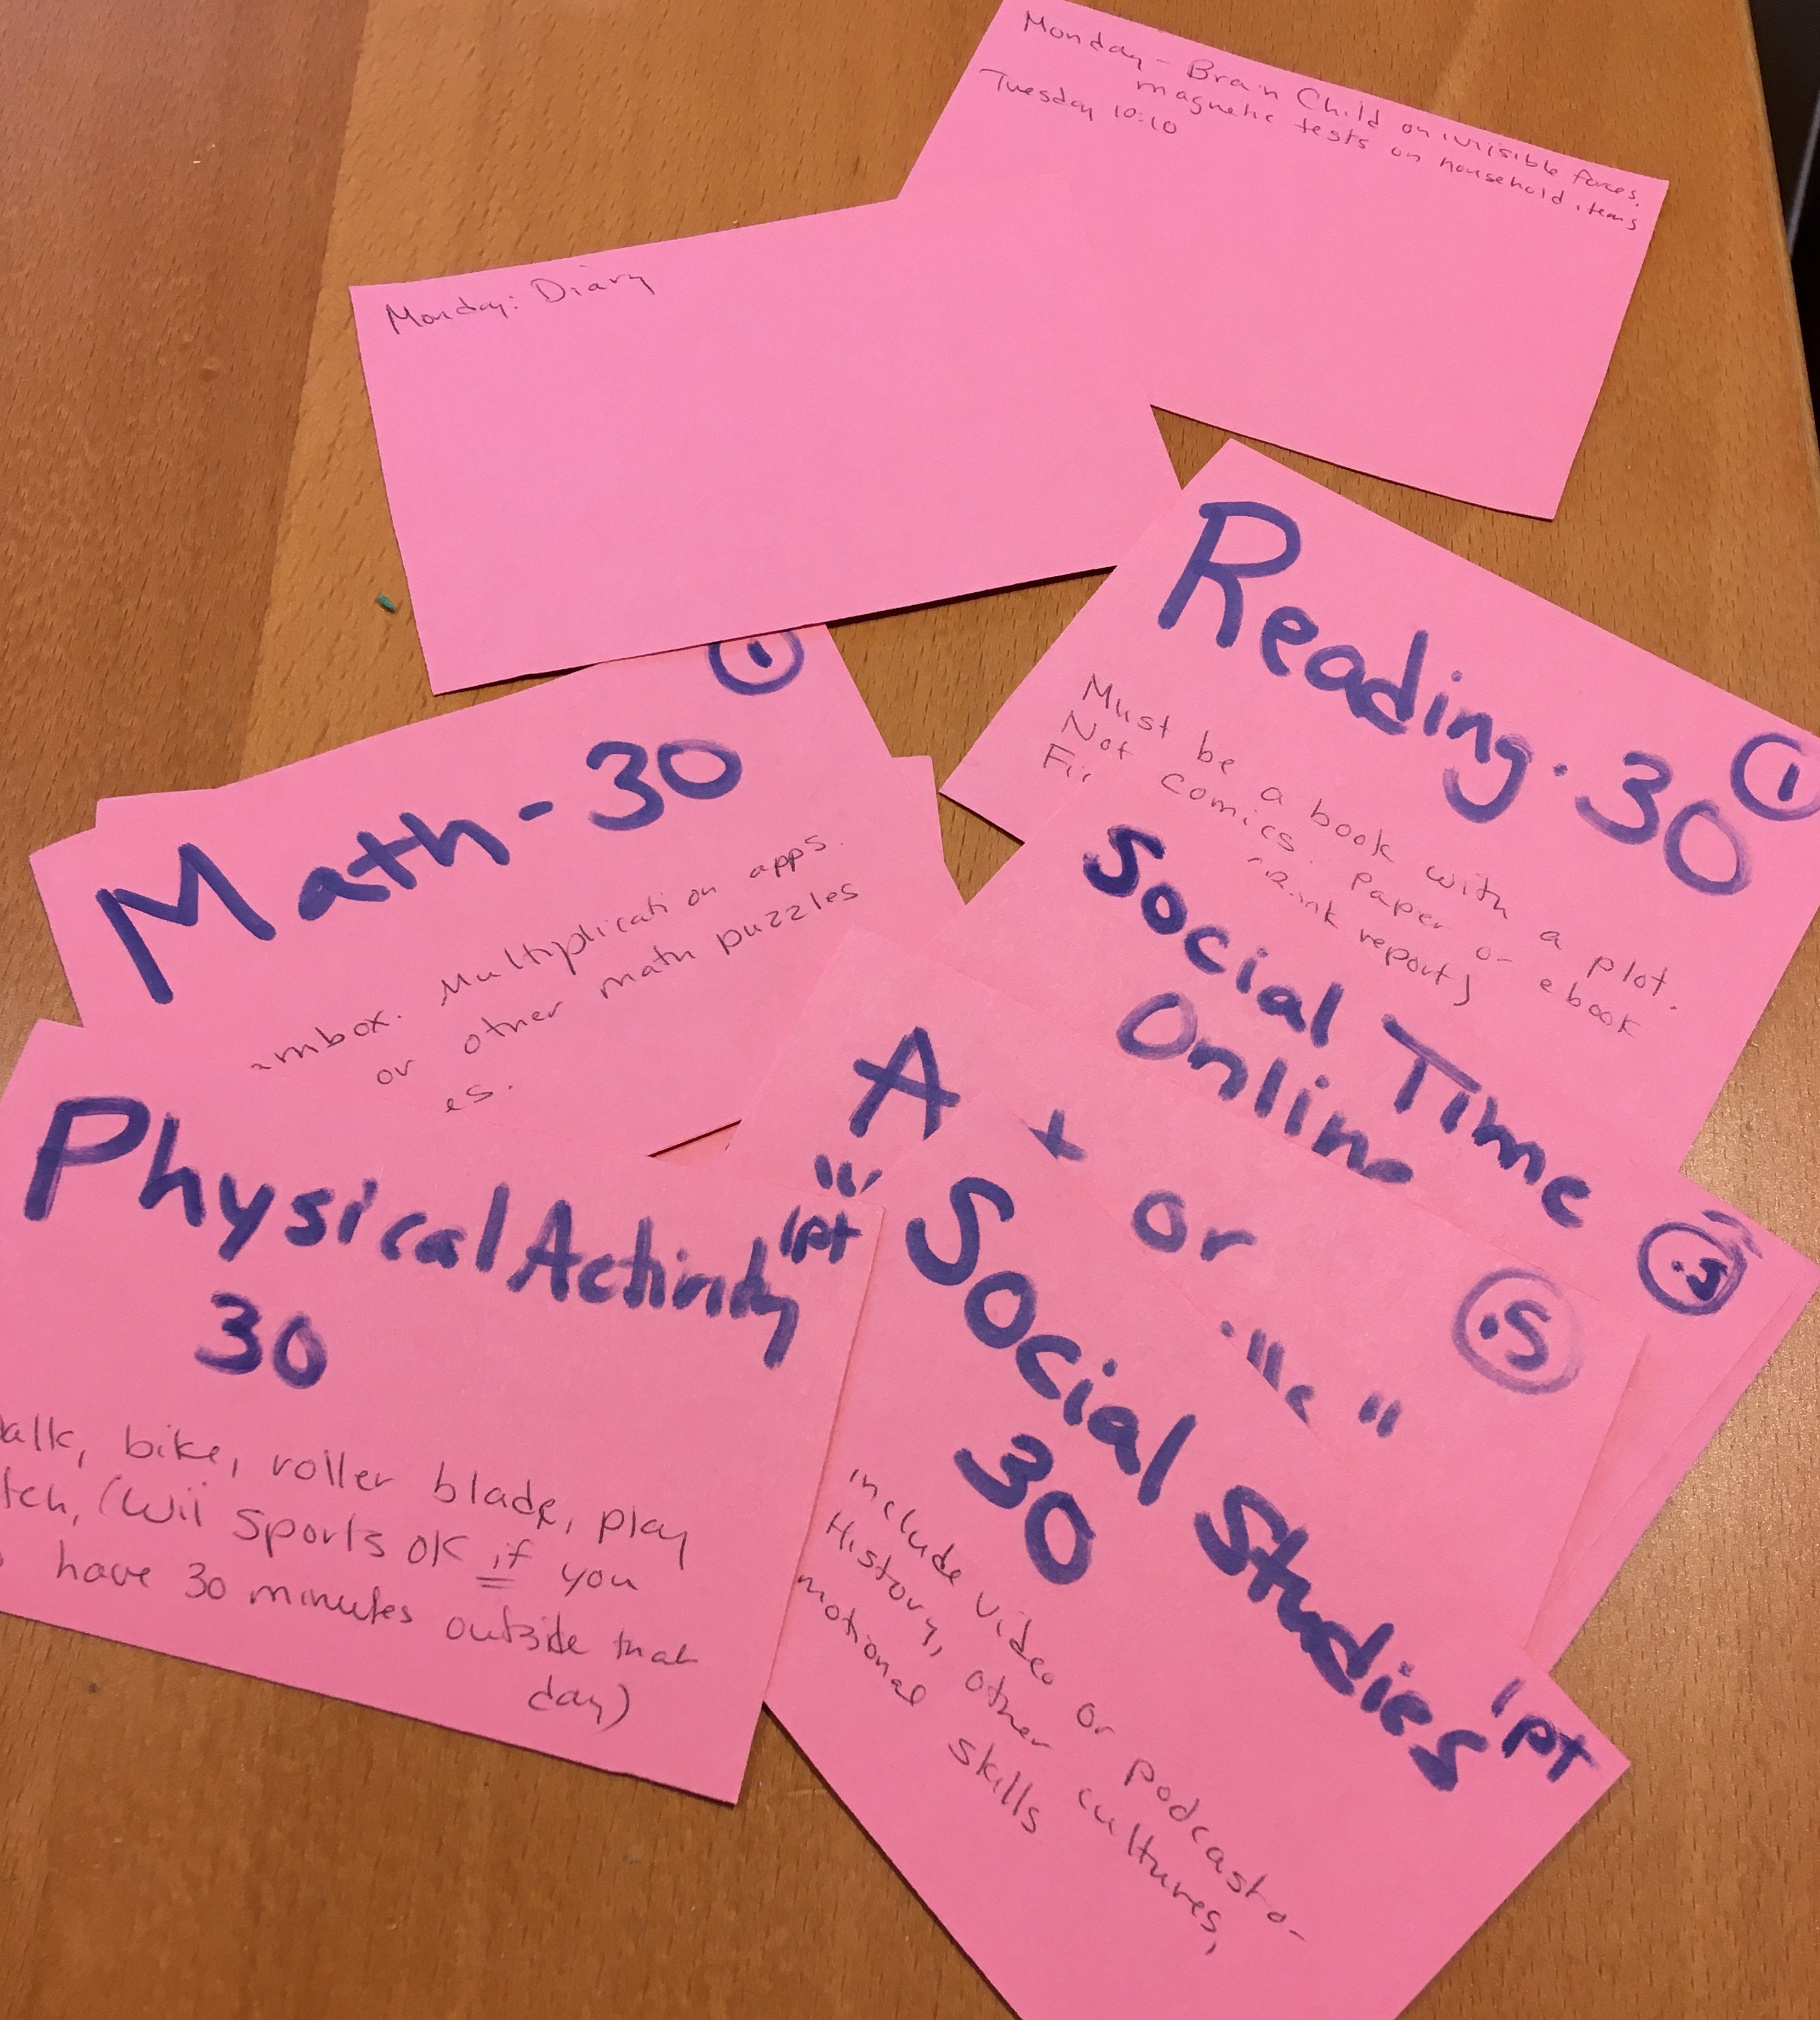 Monday - Brain Child on invisible forces,
magnetic tests on household items
Tuesday 10:10
Monday: Diary
Reading. 30
1
Must be a book with a plot.
Not comics. Paper or ebook
report)
1
Math - 30
Multiplication apps.
or other math puzzles
Social Time
Online
.5
A + or
.5
Physical Activity
1pt
30
bike, roller blade, play
(Wii Sports OK if you
have 30 minutes outside that
day)
Social Studies
1pt
30
include video or podcast -
History, other cultures,
skills